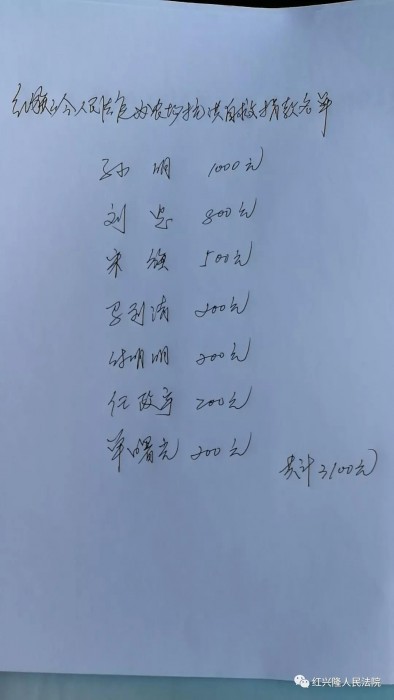 人民法庭为农场抗洪自救捐款名单
孙明 1000元
刘忠 800元
宋 500元
马利涛 200元
明明 200元
任政宇 200元
单曙光 200元
共计3100元
红兴隆人民法院